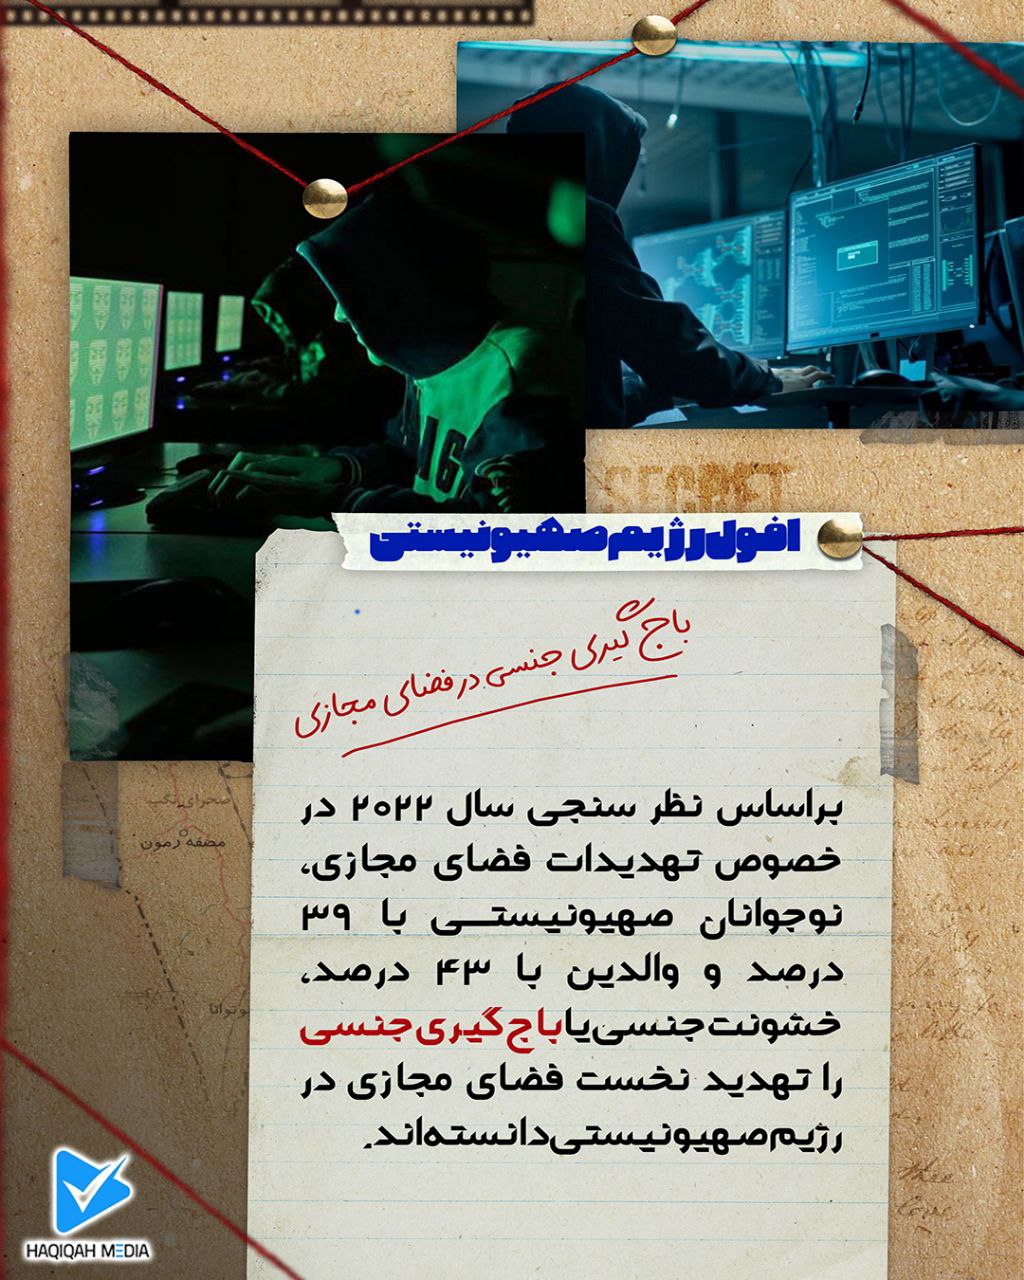 SECRET
افول رژیم صهیونیستی
باج گیری جنسی در فضای مجازی
براساس نظر سنجی سال ۲۰۲۲ در
خصوص تهدیدات فضای مجازی،
نوجوانان صهیونیستی با ۳۹
درصد و والدین با ۴۳ درصد،
خشونت جنسی یا باج گیری جنسی
را تهدید نخست فضای مجازی در
رژیم صهیونیستی دانسته‌اند.
صحرای نگب
مصفه رمون
16
HAQIQAH MEDIA